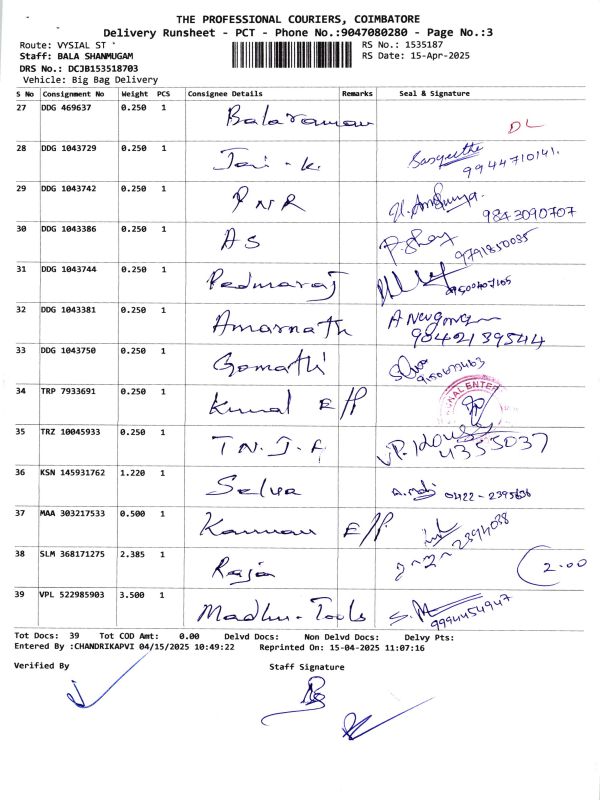 THE PROFESSIONAL COURIERS, COIMBATORE
Delivery Runsheet - PCT - Phone No.:9047080280 - Page No.:3
Route: VYSIAL ST
RS No.: 1535187
Staff: BALA SHANMUGAM
RS Date: 15-Apr-2025
DRS No.: DCJB153518703
Vehicle: Big Bag Delivery
S No Consignment No Weight PCS Consignee Details Remarks Seal & Signature
27 DDG 469637 0.250 1 Balaraman DL
28 DDG 1043729 0.250 1 Jai - K. 9944710141.
29 DDG 1043742 0.250 1 P N R 9843090707
30 DDG 1043386 0.250 1 AS 9791850035
31 DDG 1043744 0.250 1 Padmaraj
32 DDG 1043381 0.250 1 Amarnath 9842139544
33 DDG 1043750 0.250 1 Gomathi
34 TRP 7933691 0.250 1 Kunal E/P
35 TRZ 10045933 0.250 1 T N. J. A 4355037
36 KSN 145931762 1.220 1 Selva 0422-2395636
37 MAA 303217533 0.500 1 Kannan E/P. 2394038
38 SLM 368171275 2.385 1 Raja 2.00
39 VPL 522985903 3.500 1 Madhu-Tools 9994454947
Tot Docs: 39 Tot COD Amt: 0.00 Delvd Docs: Non Delvd Docs: Delvy Pts:
Entered By :CHANDRIKAPVI 04/15/2025 10:49:22 Reprinted On: 15-04-2025 11:07:16
Verified By Staff Signature